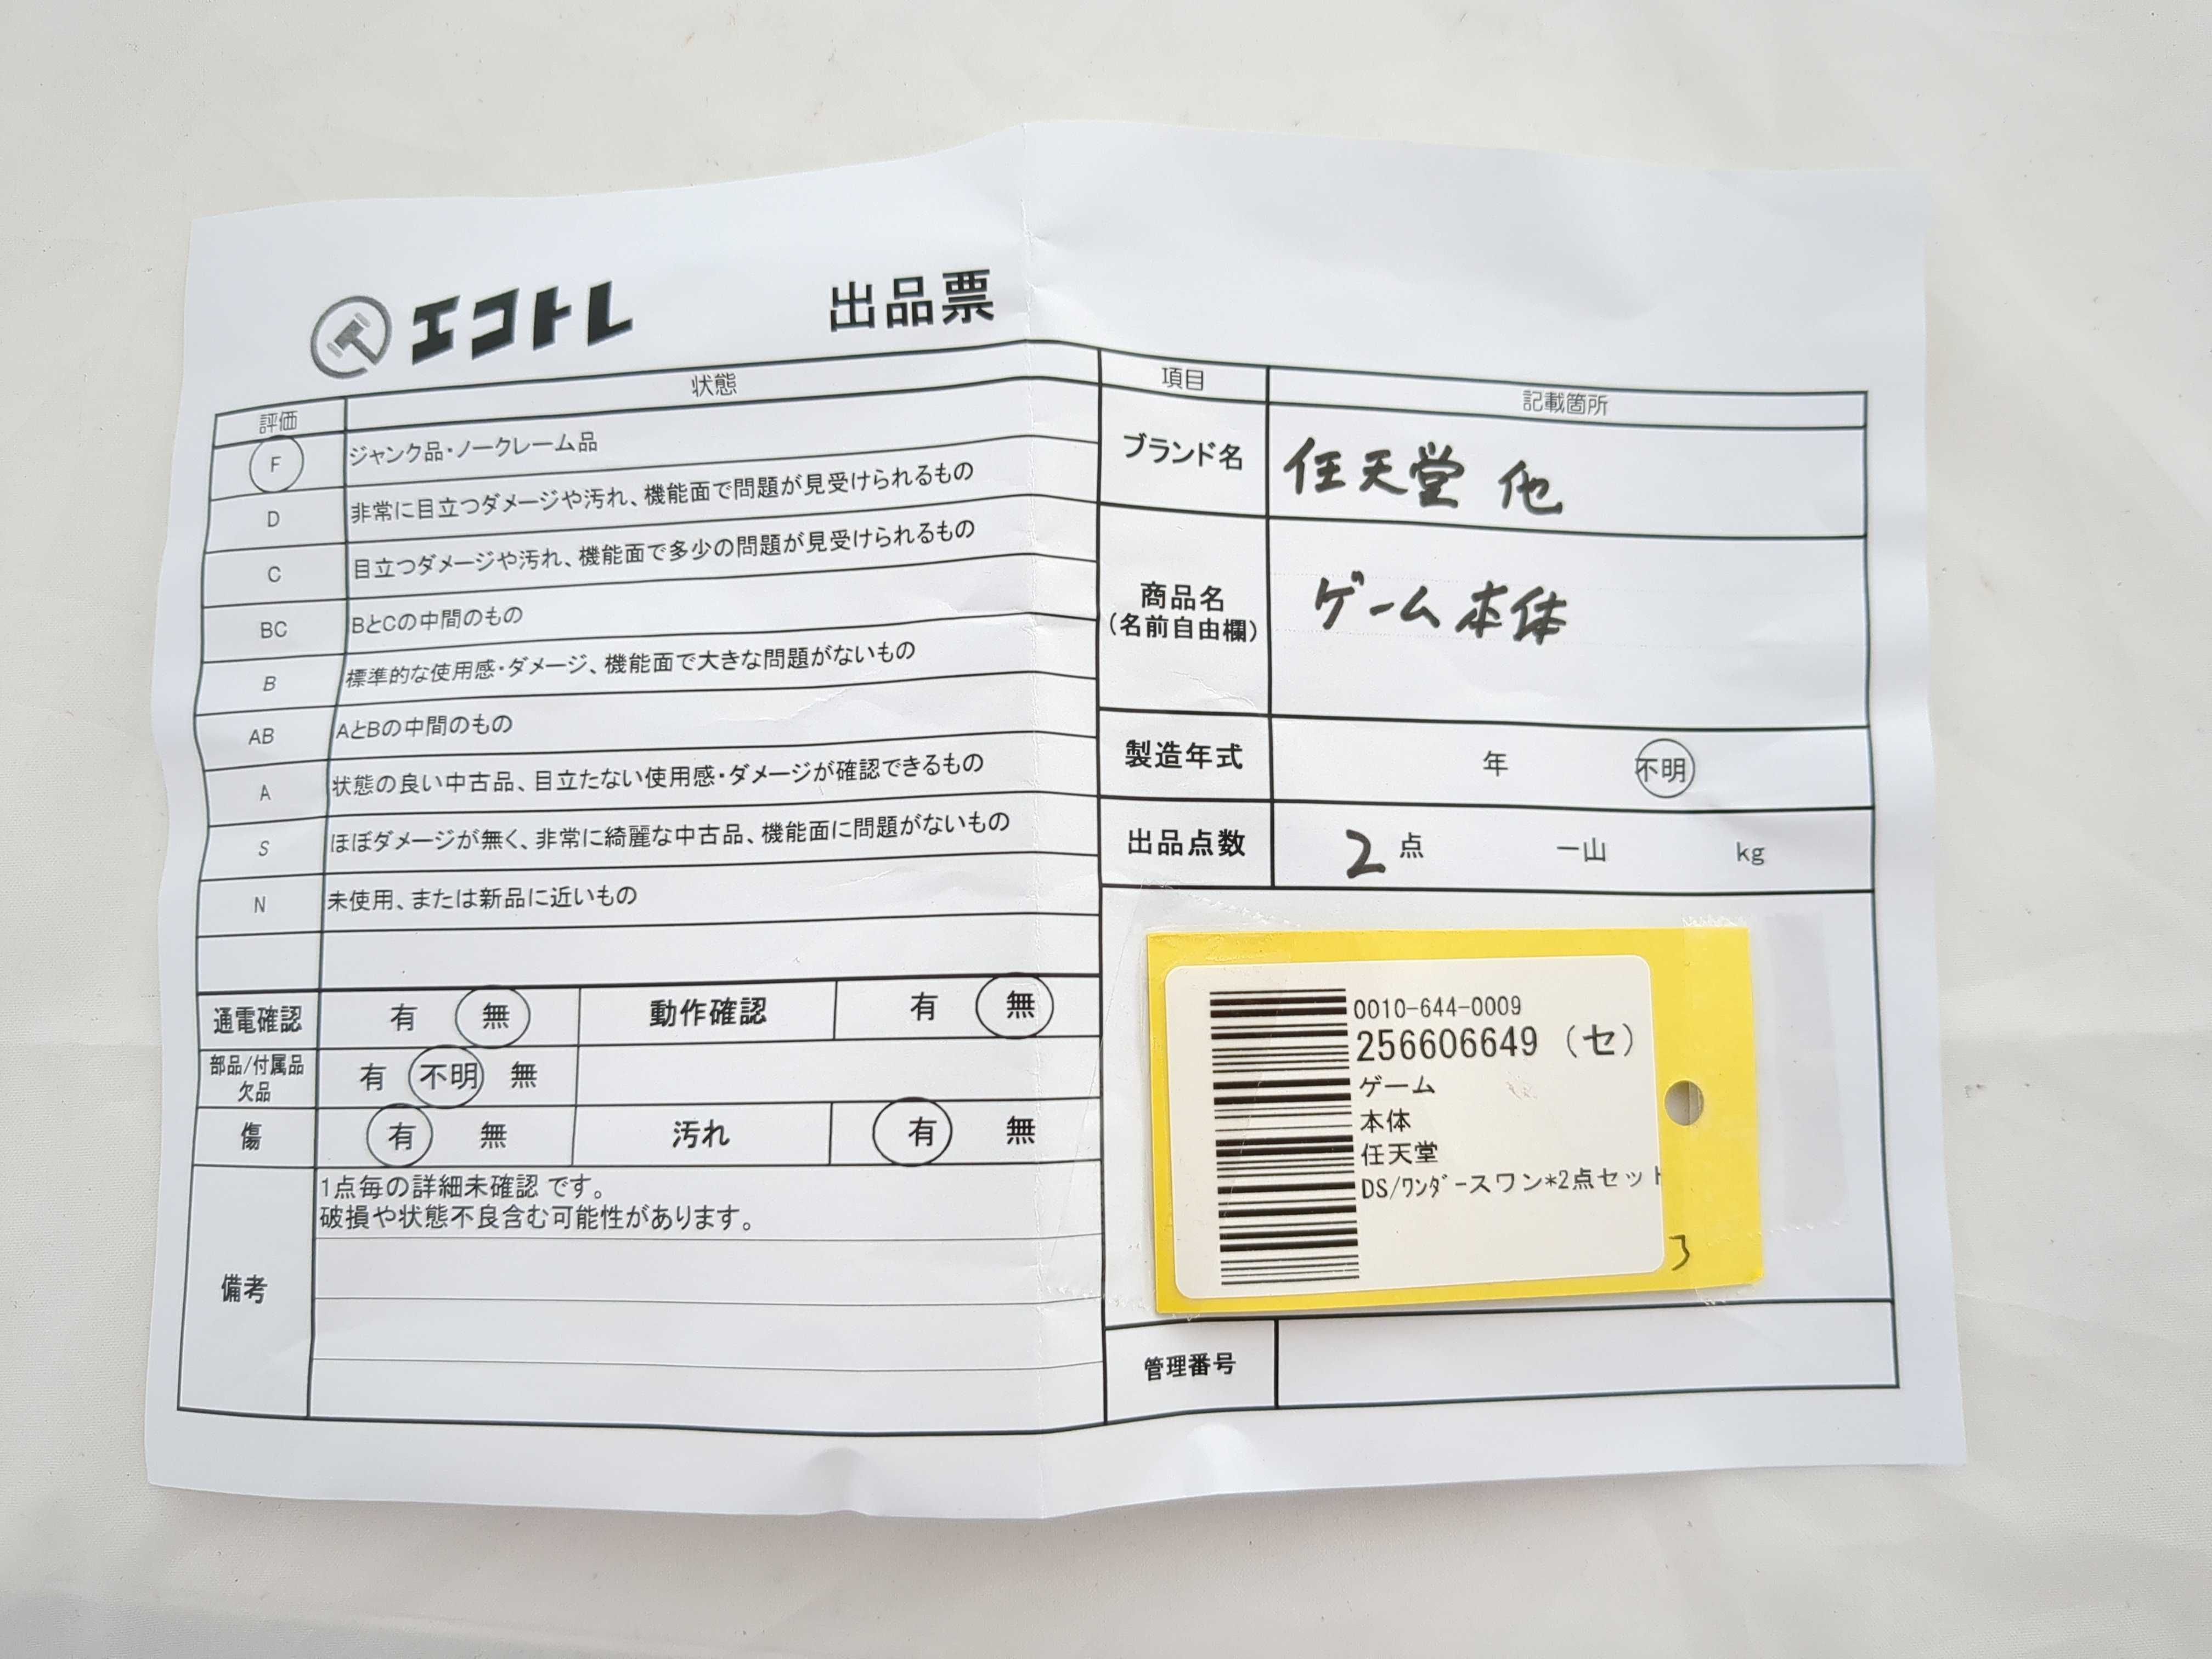 エコトレ 出品票
評価 状態
F ジャンク品・ノークレーム品
D 非常に目立つダメージや汚れ、機能面で問題が見受けられるもの
C 目立つダメージや汚れ、機能面で多少の問題が見受けられるもの
BC BとCの中間のもの
B 標準的な使用感・ダメージ、機能面で大きな問題がないもの
AB AとBの中間のもの
A 状態の良い中古品、目立たない使用感・ダメージが確認できるもの
S ほぼダメージが無く、非常に綺麗な中古品、機能面に問題がないもの
N 未使用、または新品に近いもの
通電確認 有 無 動作確認 有 無
部品/付属品
欠品 有 不明 無
傷 有 無 汚れ 有 無
備考
1点毎の詳細未確認 です。
破損や状態不良含む可能性があります。
項目 記載箇所
ブランド名 任天堂 他
商品名
(名前自由欄) ゲーム本体
製造年式 年 不明
出品点数 2 点 一山 kg
0010-644-0009
256606649 (セ)
ゲーム
本体
任天堂
DS/ワンダースワン*2点セット
管理番号